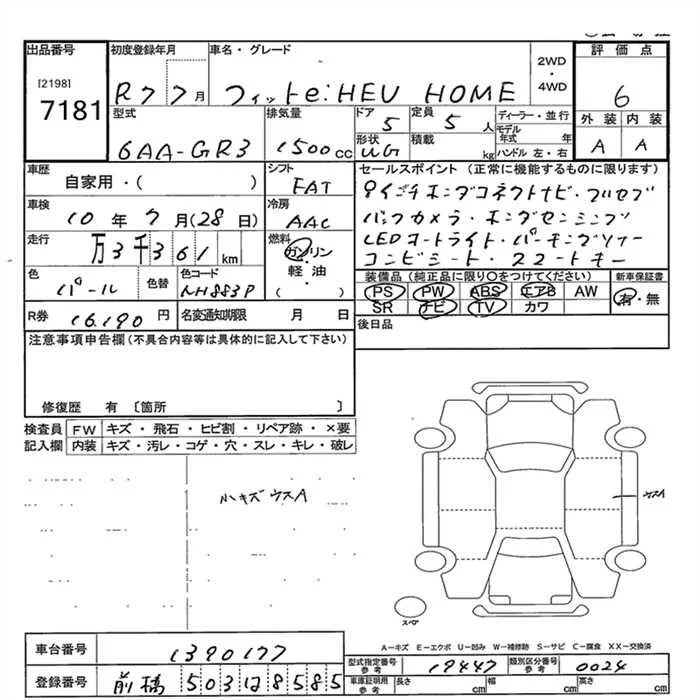 出品番号
[2198]
7181
初度登録年月
R7 7月
車名・グレード
フィットe:HEV HOME
2WD
・
4WD
評価点
6
型式
6AA-GR3
排気量
1500cc
ドア
5
定員
5人
ディーラー・並行
モデル年式 年
ハンドル 左・右
形状
UG
積載
kg
外装 内装
A A
車歴
自家用・( )
シフト
FAT
車検
10年7月(28日)
冷房
AAC
走行
万3千361km
燃料
ガソリン
・
軽油
・
( )
色
パール
色替
色コード
NH883P
セールスポイント(正常に機能するものに限ります)
9インチホンダコネクトナビ・フルセグ
バックカメラ・ホンダセンシング
LEDオートライト・パーキングソナー
コンビシート・スマートキー
装備品(純正品に限り○をつけてください)
PS PW ABS エアB AW
SR ナビ TV カワ
新車保証書
有・無
R券
16,190円
名変通知期限
月 日
後日品
注意事項申告欄(不具合内容等は具体的に記入して下さい)
修復歴 有〔箇所 〕
検査員記入欄
FW キズ・飛石・ヒビ割・リペア跡・×要
内装 キズ・汚レ・コゲ・穴・スレ・キレ・破レ
小キズウスA
ウスA
スペア
A-キズ E-エクボ U-凹み W-補修跡 S-サビ C-腐食 XX-交換済
車台番号
1390177
登録番号
前橋 503は8585
型式指定番号
参考
19447
類別区分番号
参考
0024
車庫証明用
参考
長さ cm
幅 cm
高さ cm